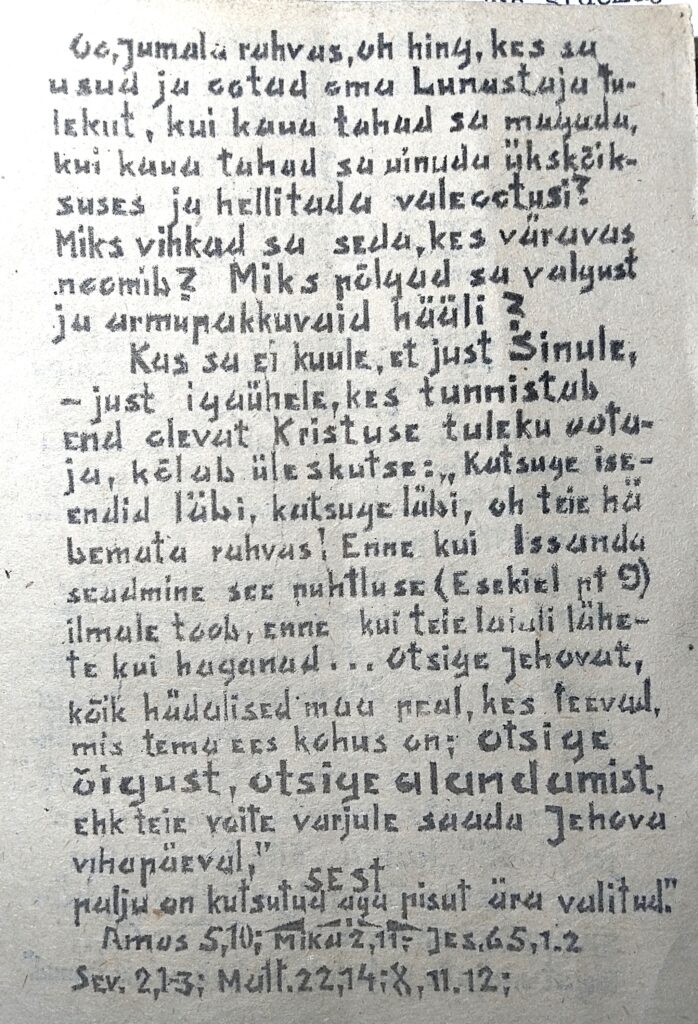 Oo, Jumala rahvas, oh hing, kes sa
usud ja ootad oma Lunastaja tu-
lekut, kui kaua tahad sa magada,
kui kaua tahad sa uinuda ükskõik-
suses ja hellitada valeootusi?
Miks vihkad sa seda, kes väravas
noomib? Miks põlgad sa valgust
ja armupakkuvaid hääli?
Kas sa ei kuule, et just Sinule,
- just igaühele, kes tunnistab
end olevat Kristuse tuleku oota-
ja, kõlab üleskutse: „Katsuge ise-
endid läbi, katsuge läbi, oh teie hä
bemata rahvas! Enne kui Issanda
seadmine see nuhtluse (Esekiel pt 9)
ilmale toob, enne kui teie laiali lähe-
te kui haganad... otsige Jehovat,
kõik hädalised maa peal, kes teevad,
mis tema ees kohus on; otsige
õigust, otsige alandamist,
ehk teie võite varjule saada Jehova
vihapäeval,"
SEST
palju on kutsutud aga pisut ära valitud."
Amos 5,10; Mika 2,11; Jes. 65,1.2
Sev. 2,1-3; Matt. 22,14; 8, 11.12;